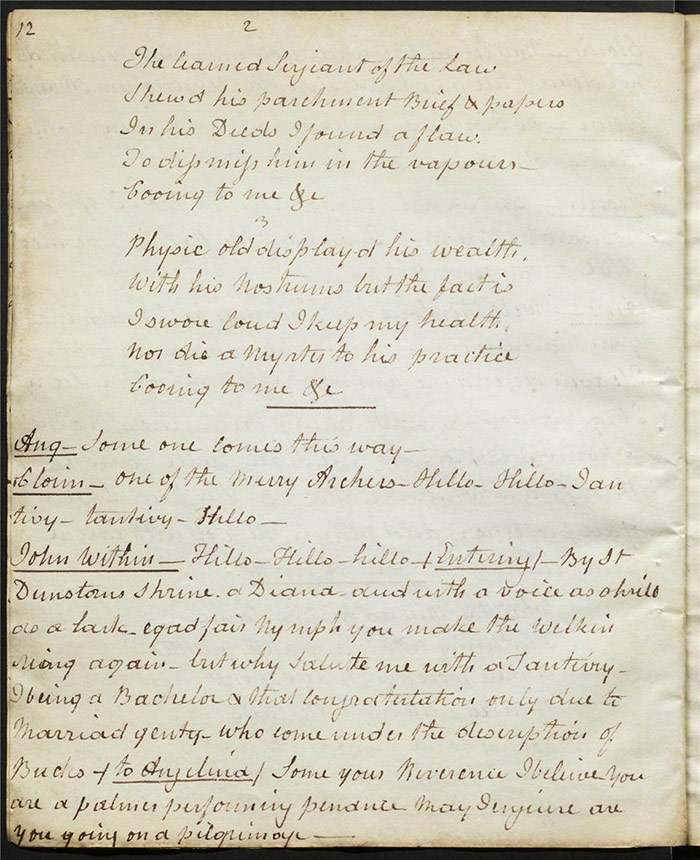 12
2
The learned Serjeant of the Law
Shewd his parchment Brief & papers
In his Deeds I found a flaw.
To dismiss him in the vapours—
Cooing to me &c
3
Physic old displayd his wealth,
With his Nostrums but the fact is
I swore loud I keep my health,
Nor die a Myrter to his practice
Cooing to me &c
Ang— Some one comes this way—
Clorin— one of the Merry Archers—Hillo—Hillo—Tan
tivy— tantivy— Hillo—
John Within— Hillo—Hillo—hillo—(Entering)—By St
Dunstons Shrine. a Diana—and with a voice as shrill
as a lark—egad fair Nymph you make the Welkin
Ring again—but why Salute me with a Tantivy—
I being a Bachelor & that congratutation only due to
Married genty—who come under the description of
Bucks—(to Angelina) Some your Reverence I believe you
are a palmer performing penance May I enquire are
you going on a pilgrimage—